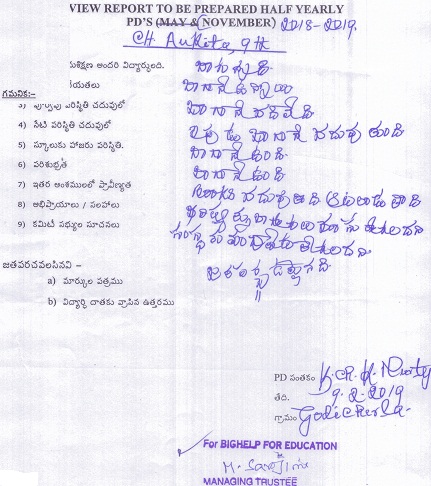 VIEW REPORT TO BE PREPARED HALF YEARLY
PD'S (MAY & NOVEMBER) 2018-2019.
CH. Ankita, 9th
అందరి విద్యార్థులది. బాగున్నది
గమనిక:-
3) పూర్వపు పరిస్థితి చదువులో బాగానే చదివేది
4) నేటి పరిస్థితి చదువులో ఇపుడు బాగానే చదువుతుంది
5) స్కూలుకు హాజరు పరిస్థితి. బాగానే ఉంది
6) పరిశుభ్రత బాగానే ఉంది
7) ఇతర అంశములలో ప్రావీణ్యత Books చదువుతుంది ఆటలాడుతాది
8) అభిప్రాయాలు / సలహాలు
9) కమిటీ సభ్యుల సూచనలు
జతపరచవలసినవి -
a) మార్కుల పత్రము
b) విద్యార్థి దాతకు వ్రాసిన ఉత్తరము
"
PD సంతకం K.CH.K. Murty
తేది. 9-2-2019
గ్రామం Godicherla.
For BIGHELP FOR EDUCATION
M. Sarojini
MANAGING TRUSTEE